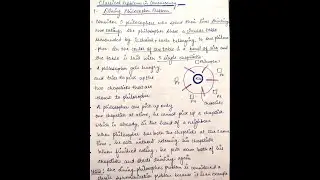 Classical Problems in Concurrency
1. Dining Philosophers Problem:
Consider 5 philosophers who spend their lives thinking
and eating. The philosophers share a circular table
surrounded by 5 chairs each belonging to one philoso-
pher. In the center of the table is a bowl of rice and
the table is laid with 5 single chopsticks.
A philosopher gets hungry
and tries to pick up the
two chopsticks that are
closest to him.
A philosopher can pick up only
one chopstick at a time, he cannot pick up a chopstick
which is already in the hand of a neighbour
When philosopher has both the chopsticks at the same
time, he eats without releasing his chopsticks
When finished eating, he puts down both of his
chopsticks and starts thinking again
The dining philosophers problem is considered a
classic synchronization problem because it is an example
Philosopher
Rice
chopsticks